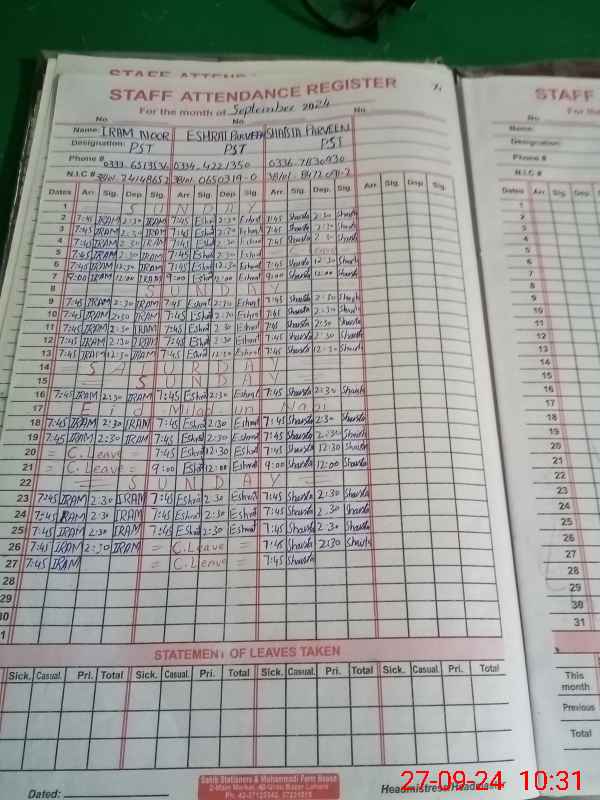 STAFF ATTENDANCE REGISTER
For the month of September 2024
No. No. No.
Name: IRAM NOOR ESHRAT PARVEEN SHAISTA PARVEEN
Designation: PST PST PST
Phone # 0334-4221350 0336-7830930
N.I.C #
Dates Arr. Sig. Dep. Sig. Arr. Sig. Dep. Sig. Arr. Sig. Dep. Sig. Arr. Sig. Dep. Sig.
1 S U N D A Y
2 7:45 IRAM 2:30 IRAM 7:45 Eshrat 2:30 Eshrat 7:45 Shaista 2:30 Shaista
3 7:45 IRAM 2:30 IRAM 7:45 Eshrat 2:30 Eshrat 7:45 Shaista 2:30 Shaista
4 7:45 IRAM 2:30 IRAM 7:45 Eshrat 2:30 Eshrat 7:45 Shaista 2:30 Shaista
5 7:45 IRAM 2:30 IRAM 7:45 Eshrat 2:30 Eshrat
6 7:45 IRAM 12:30 IRAM 7:45 Eshrat 12:30 Eshrat 7:45 Shaista 12:30 Shaista
7 9:00 IRAM 12:00 IRAM 9:00 Eshrat 12:00 Eshrat 9:00 Shaista 12:00 Shaista
8 S U N D A Y
9 7:45 IRAM 2:30 IRAM 7:45 Eshrat 2:30 Eshrat 7:45 Shaista 2:30 Shaista
10 7:45 IRAM 2:30 IRAM 7:45 Eshrat 2:30 Eshrat 7:45 Shaista 2:30 Shaista
11 7:45 IRAM 2:30 IRAM 7:45 Eshrat 2:30 Eshrat 7:45 Shaista 2:30 Shaista
12 7:45 IRAM 2:30 IRAM 7:45 Eshrat 2:30 Eshrat 7:45 Shaista 2:30 Shaista
13 7:45 IRAM 12:30 IRAM 7:45 Eshrat 12:30 Eshrat 7:45 Shaista 12:30 Shaista
14 = S A T U R D A Y =
15 = S U N D A Y =
16 7:45 IRAM 2:30 IRAM 7:45 Eshrat 2:30 Eshrat 7:45 Shaista 2:30 Shaista
17 Eid Milad un Nabi
18 7:45 IRAM 2:30 IRAM 7:45 Eshrat 2:30 Eshrat 7:45 Shaista 2:30 Shaista
19 7:45 IRAM 2:30 IRAM 7:45 Eshrat 2:30 Eshrat 7:45 Shaista 2:30 Shaista
20 = C.Leave = 7:45 Eshrat 12:30 Eshrat 7:45 Shaista 12:30 Shaista
21 = C.Leave = 9:00 Eshrat 12:00 Eshrat 9:00 Shaista 12:00 Shaista
22 = S U N D A Y =
23 7:45 IRAM 2:30 IRAM 7:45 Eshrat 2:30 Eshrat 7:45 Shaista 2:30 Shaista
24 7:45 IRAM 2:30 IRAM 7:45 Eshrat 2:30 Eshrat 7:45 Shaista 2:30 Shaista
25 7:45 IRAM 2:30 IRAM 7:45 Eshrat 2:30 Eshrat 7:45 Shaista 2:30 Shaista
26 7:45 IRAM 2:30 IRAM = C.Leave = 7:45 Shaista 2:30 Shaista
27 7:45 IRAM = C.Leave = 7:45 Shaista
28
29
30
31
STATEMENT OF LEAVES TAKEN
Sick. Casual. Pri. Total Sick. Casual. Pri. Total Sick. Casual. Pri. Total Sick. Casual. Pri. Total
Sahib Stationers & Muhammadi Form House
2-Main Market, 40-Urdu Bazar Lahore
Dated: Headmistress/Headmaster
STAFF
No.
Name:
Designation:
Phone #
N.I.C #
Dates Arr. Sig. Dep. Sig.
1
2
3
4
5
6
7
8
9
10
11
12
13
14
15
16
17
18
19
20
21
22
23
24
25
26
27
28
29
30
31
Sick.
This month
Previous
Total
27-09-24 10:31